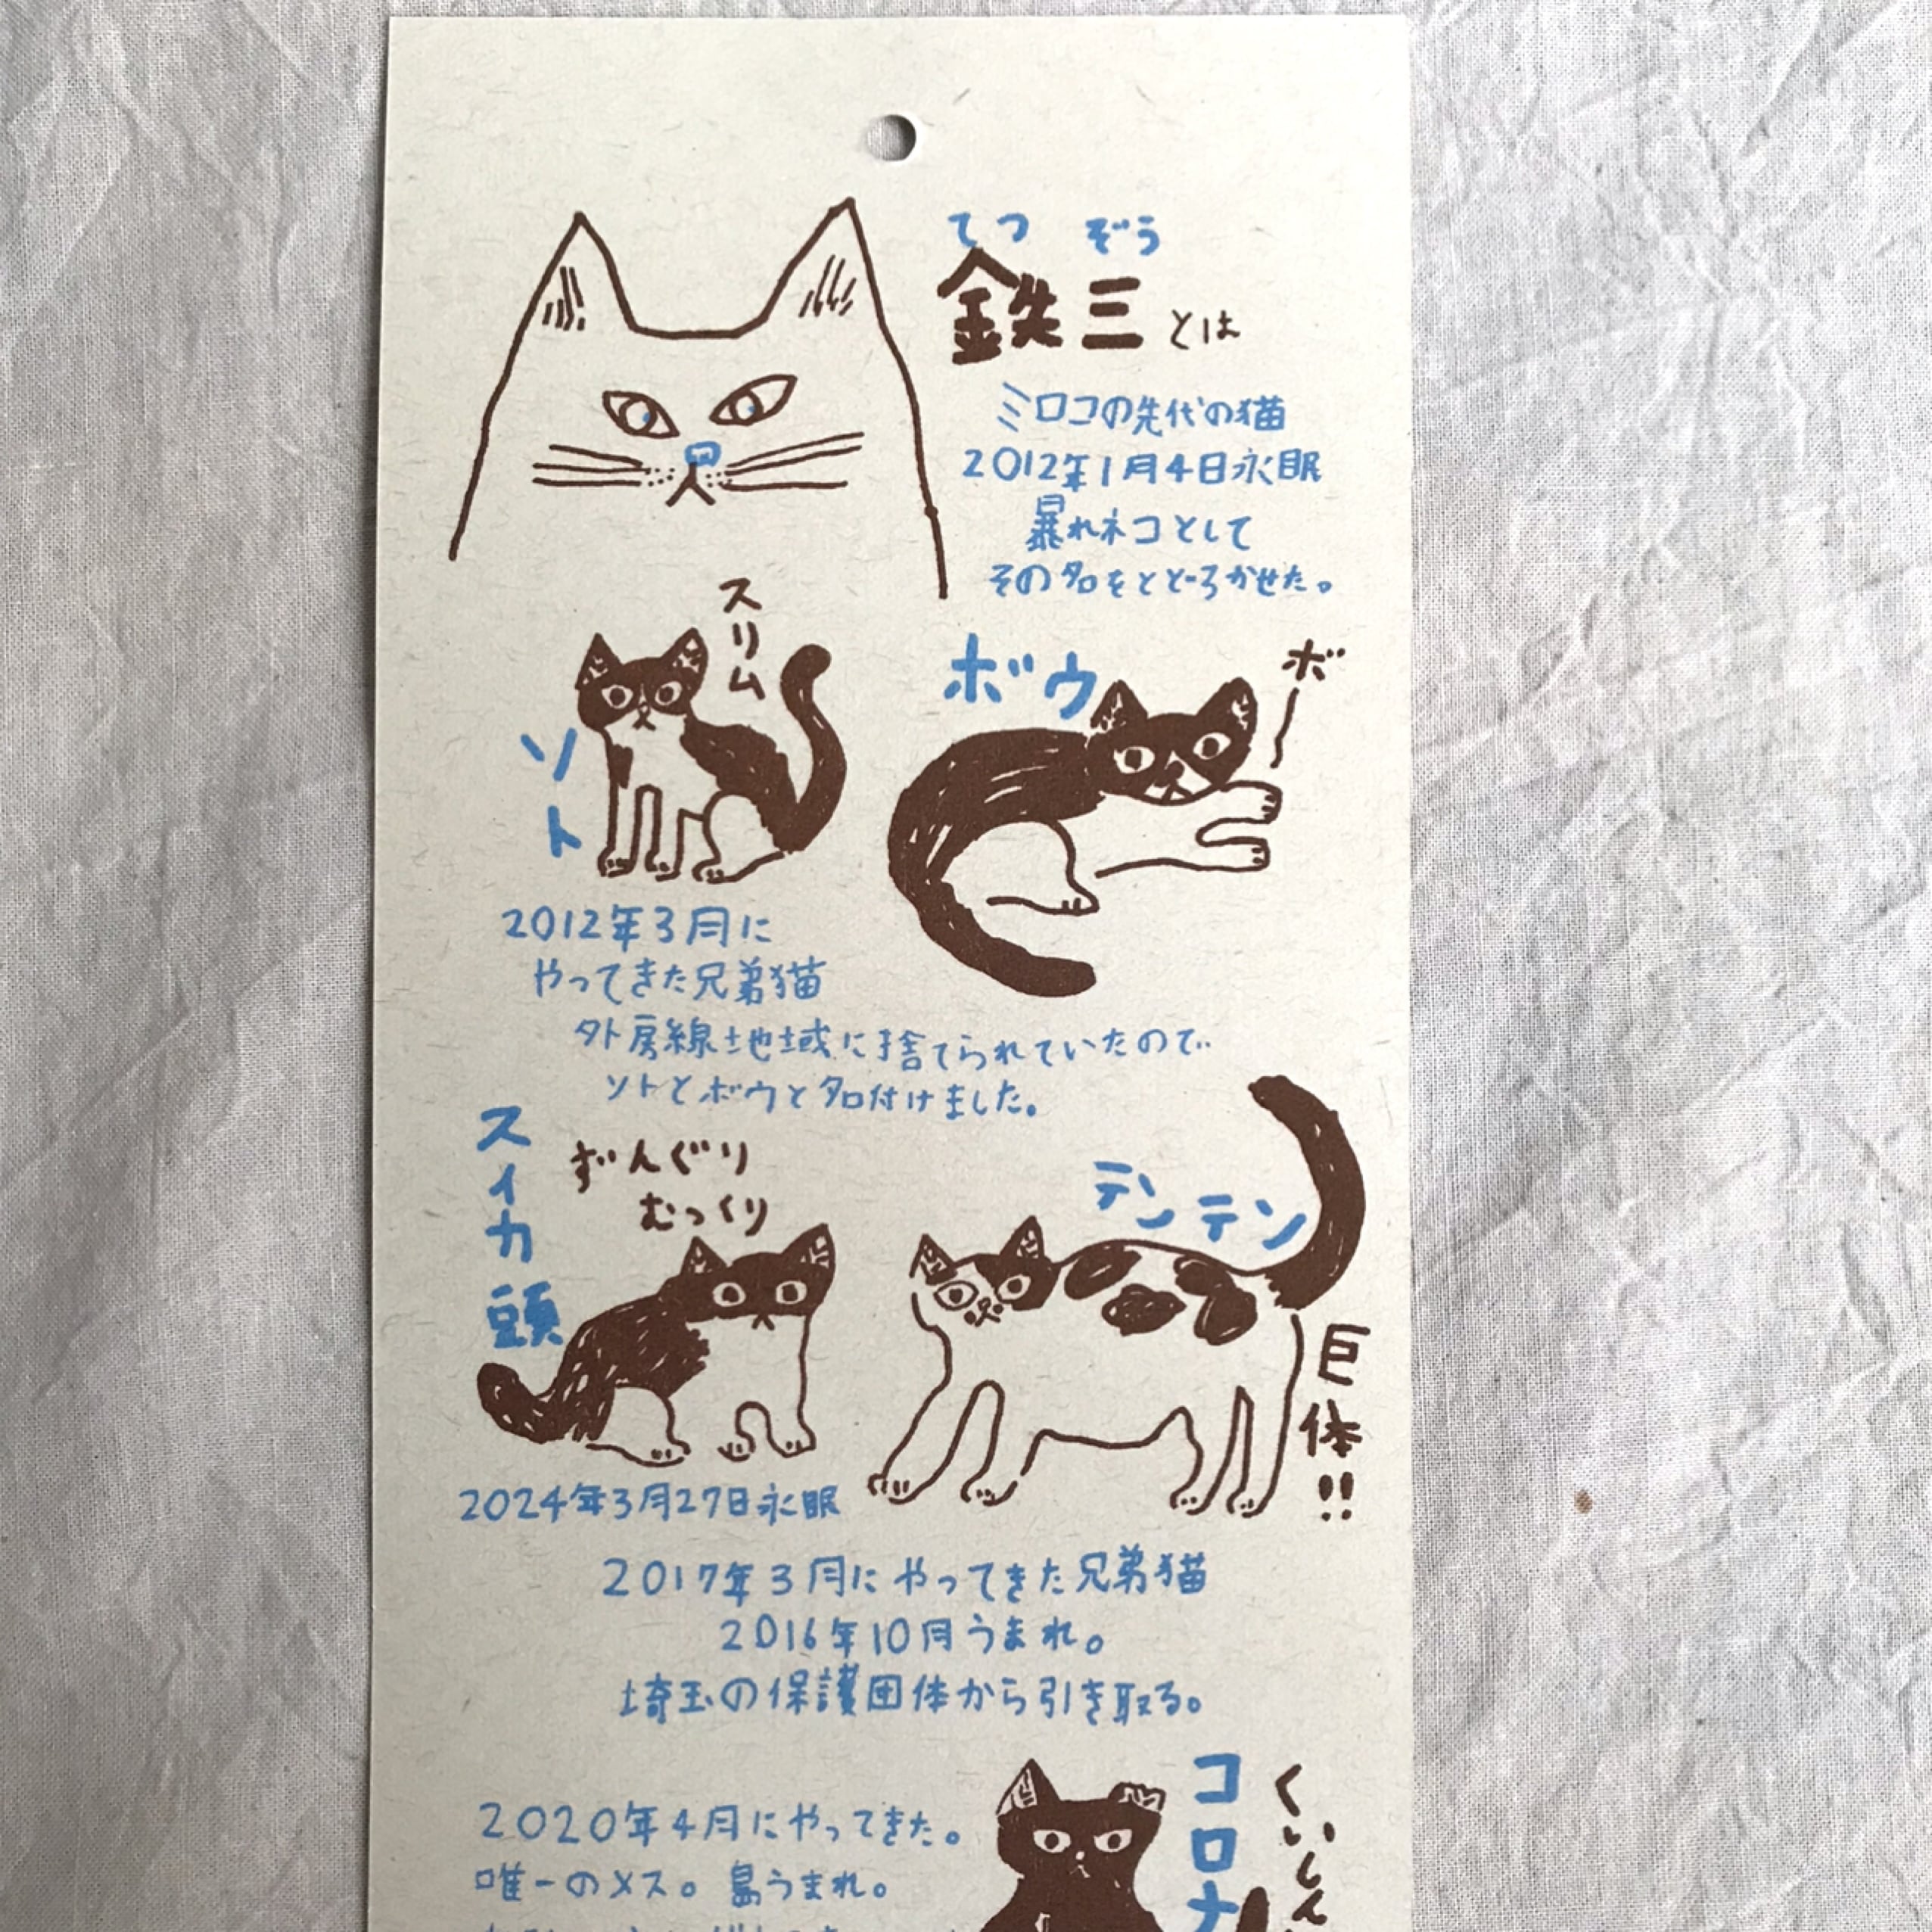 てつ ぞう
鉄三とは
ミロコの先代の猫
2012年1月4日永眠
暴れネコとして
その名をとどろかせた。
スリム
ソト
ボウ
ボー
2012年3月に
やってきた兄弟猫
外房線地域に捨てられていたので
ソトとボウと名付けました。
スイカ頭
ずんぐり
むっくり
テンテン
巨体!!
2024年3月27日永眠
2017年3月にやってきた兄弟猫
2016年10月うまれ。
埼玉の保護団体から引き取る。
コロナ
くいしん
2020年4月にやってきた。
唯一のメス。島うまれ。